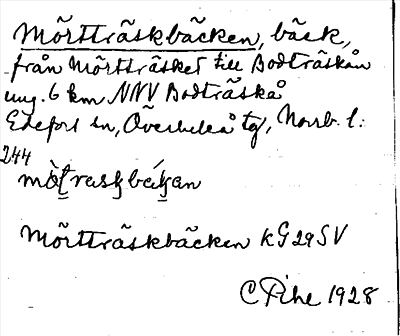 Mörtträskbäcken, bäck,
från Mörtträsket till Bodträskån
ung. 6 km NNV Bodträskå
Edefors sn, Överluleå tg, Norrb. l:
244
Mörtträskbäcken KG 29 SV
C Pihl 1928